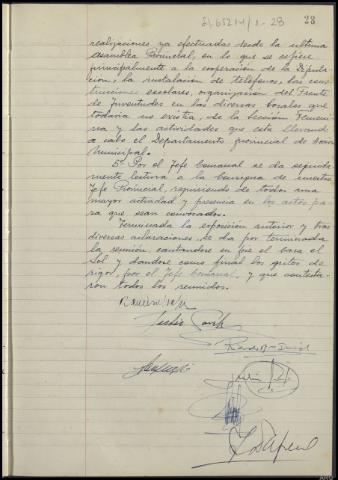 28
realizaciones ya efectuadas desde la ultima
asamblea Provincial, en lo que se refiere
principalmente a la cooperación de la Diputa-
cion, la instalación de teléfonos, las cons-
trucciones escolares, organización del Frente
de Juventudes en las diversas locales que
todavia no exista, de la Sección Femeni-
na y las actividades que esta llevando
a cabo el Departamento provincial de
Municipal.
5º Por el Jefe Comarcal se da seguida-
mente lectura a la consigna de nuestro
Jefe Provincial, requiriendo de todos una
mayor actividad y presencia en los actos pa-
ra que sean convocados.
Terminada la exposición anterior y tras
diversas aclaraciones, se da por terminada
la reunión, cantandose en pie el Cara al
Sol y dandose como final los gritos de
rigor, por el Jefe Comarcal, y que contesta-
ron todos los reunidos.